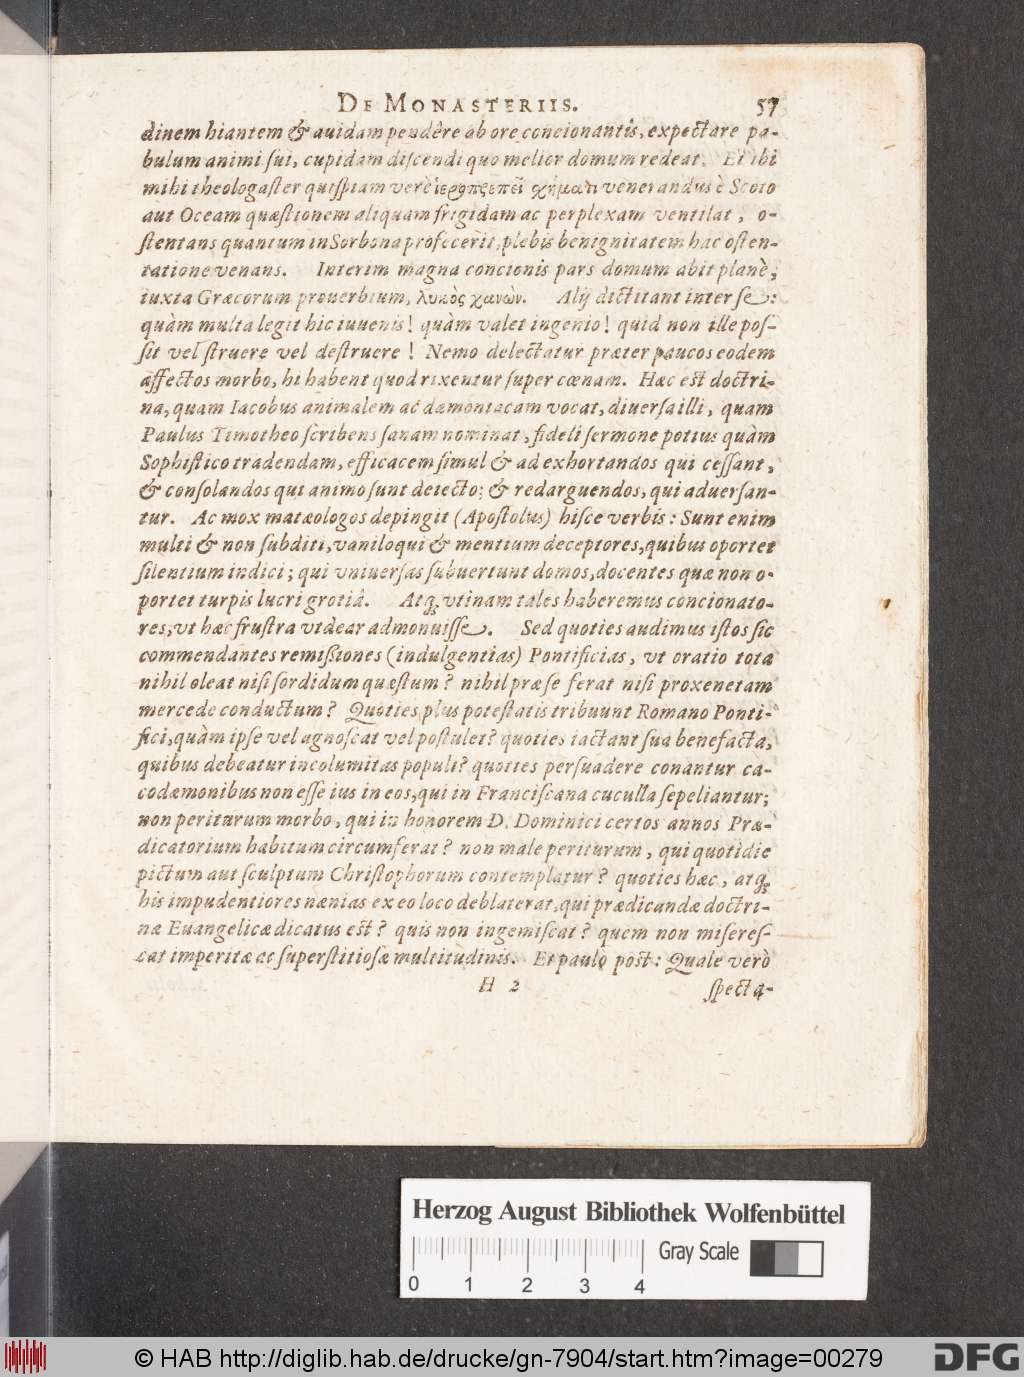 DE MONASTERIIS. 57
dinem hiantem & auidam pendêre ab ore concionantis, expectare pa-
bulum animi sui, cupidam discendi quo melior domum redeat. Et ibi
mihi theologaster quispiam verè ἱεροπρεπεῖ χήματι venerandus è Scoto
aut Occam quæstionem aliquam frigidam ac perplexam ventilat, o-
stentans quantum in Sorbona profecerit, plebis benignitatem hac osten-
tatione venans. Interim magna concionis pars domum abit planè,
iuxta Græcorum prouerbium, λυκὸς χανών. Alij dictitant inter se:
quàm multa legit hic iuuenis! quàm valet ingenio! quid non ille pos-
sit vel struere vel destruere! Nemo delectatur præter paucos eodem
affectos morbo, hi habent quod rixentur super cœnam. Hæc est doctri-
na, quam Iacobus animalem ac dæmoniacam vocat, diuersa illi, quam
Paulus Timotheo scribens sanam nominat, fideli sermone potius quàm
Sophistico tradendam, efficacem simul & ad exhortandos qui cessant,
& consolandos qui animo sunt deiecto; & redarguendos, qui aduersan-
tur. Ac mox matæologos depingit (Apostolus) hisce verbis: Sunt enim
multi & non subditi, vaniloqui & mentium deceptores, quibus oportet
silentium indici; qui vniuersas subuertunt domos, docentes quæ non o-
portet turpis lucri gratiâ. Atq; vtinam tales haberemus concionato-
res, vt hæc frustra videar admonuisse. Sed quoties audimus istos sic
commendantes remißiones (indulgentias) Pontificias, vt oratio tota
nihil oleat nisi sordidum quæstum? nihil præ se ferat nisi proxenetam
mercede conductum? Quoties plus potestatis tribuunt Romano Ponti-
fici, quàm ipse vel agnoscat vel postulet? quoties iactant sua benefacta,
quibus debeatur incolumitas populi? quoties persuadere conantur ca-
codæmonibus non esse ius in eos, qui in Franciscana cuculla sepeliantur;
non periturum morbo, qui in honorem D. Dominici certos annos Præ-
dicatorium habitum circumferat? non male periturum, qui quotidie
pictum aut sculptum Christophorum contemplatur? quoties hæc, atq;
his impudentiores nænias ex eo loco deblaterat, qui prædicandæ doctri-
næ Euangelicæ dicatus est? quis non ingemiscat? quem non miseres-
cat imperitæ ac superstitiosæ multitudinis. Et paulo post: Quale verò
H 2 specta-
Herzog August Bibliothek Wolfenbüttel
Gray Scale
0 1 2 3 4
© HAB http://diglib.hab.de/drucke/gn-7904/start.htm?image=00279
DFG